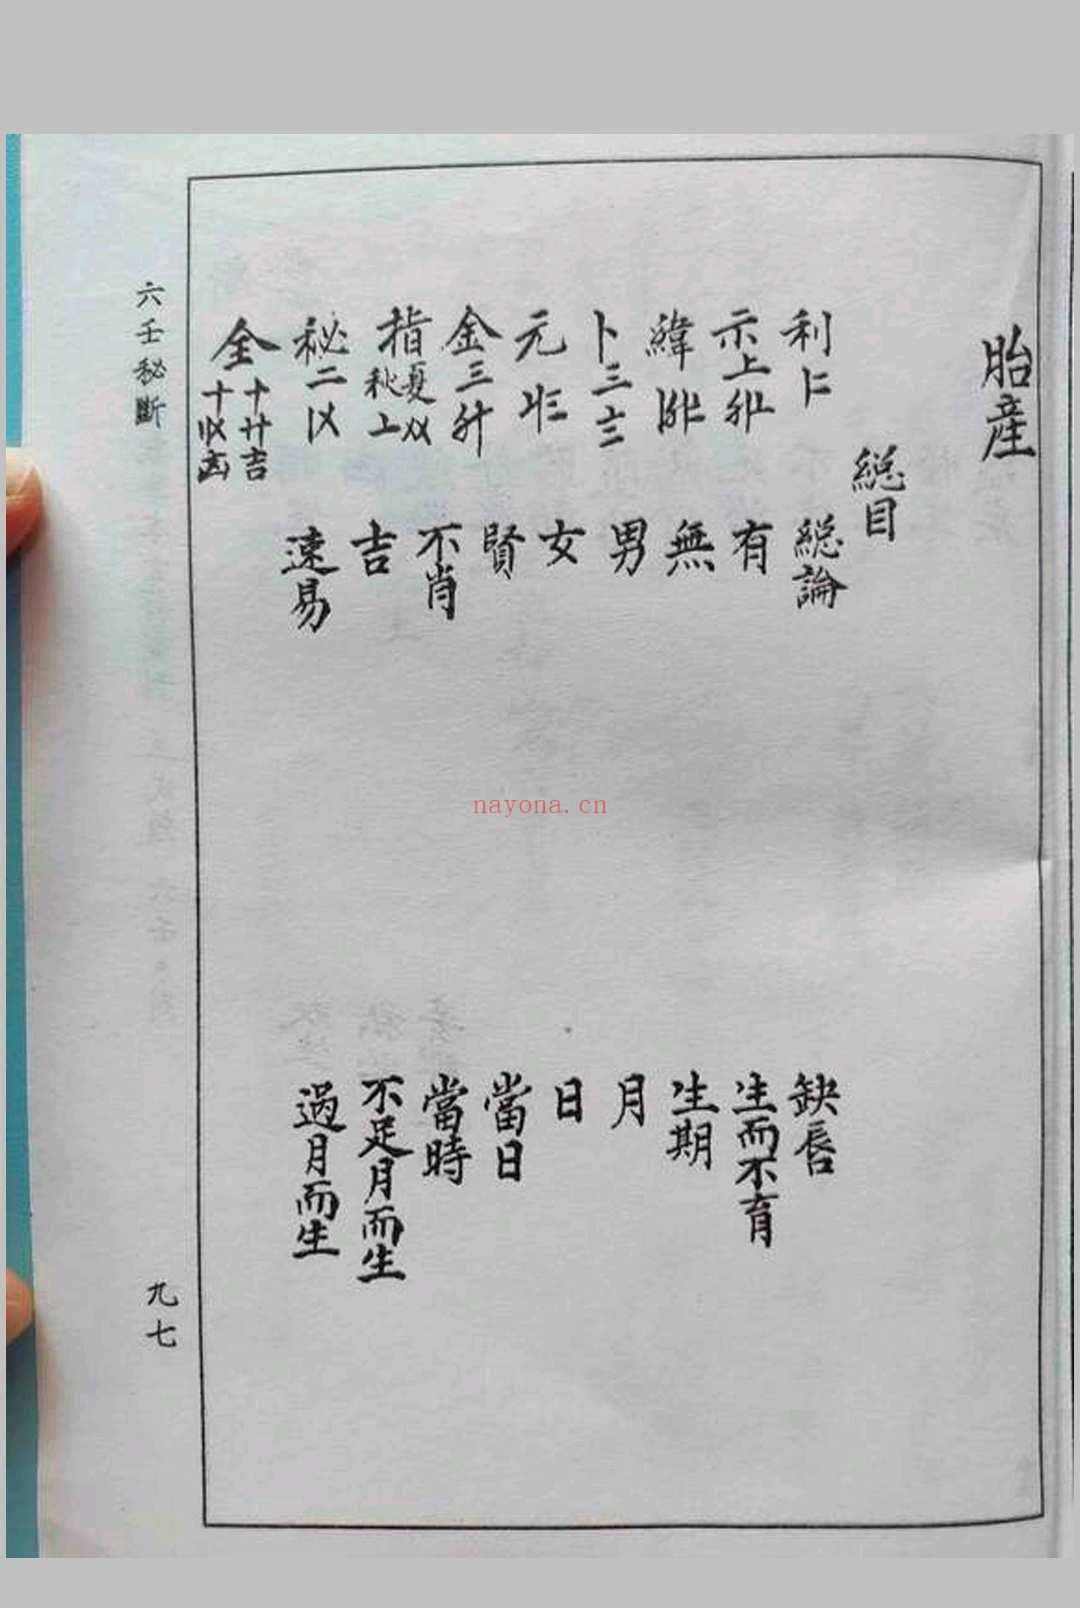 胎産
総目
利
示上
緯
卜三
元
金三
指夏秋上
秘二
全十廿吉十凶
総論
有
無
男
女
賢
不肖
吉
速易
缺唇
生而不育
生期
月
日
當日
當時
不足月而生
過月而生
六壬秘斷
九七
nayona.cn